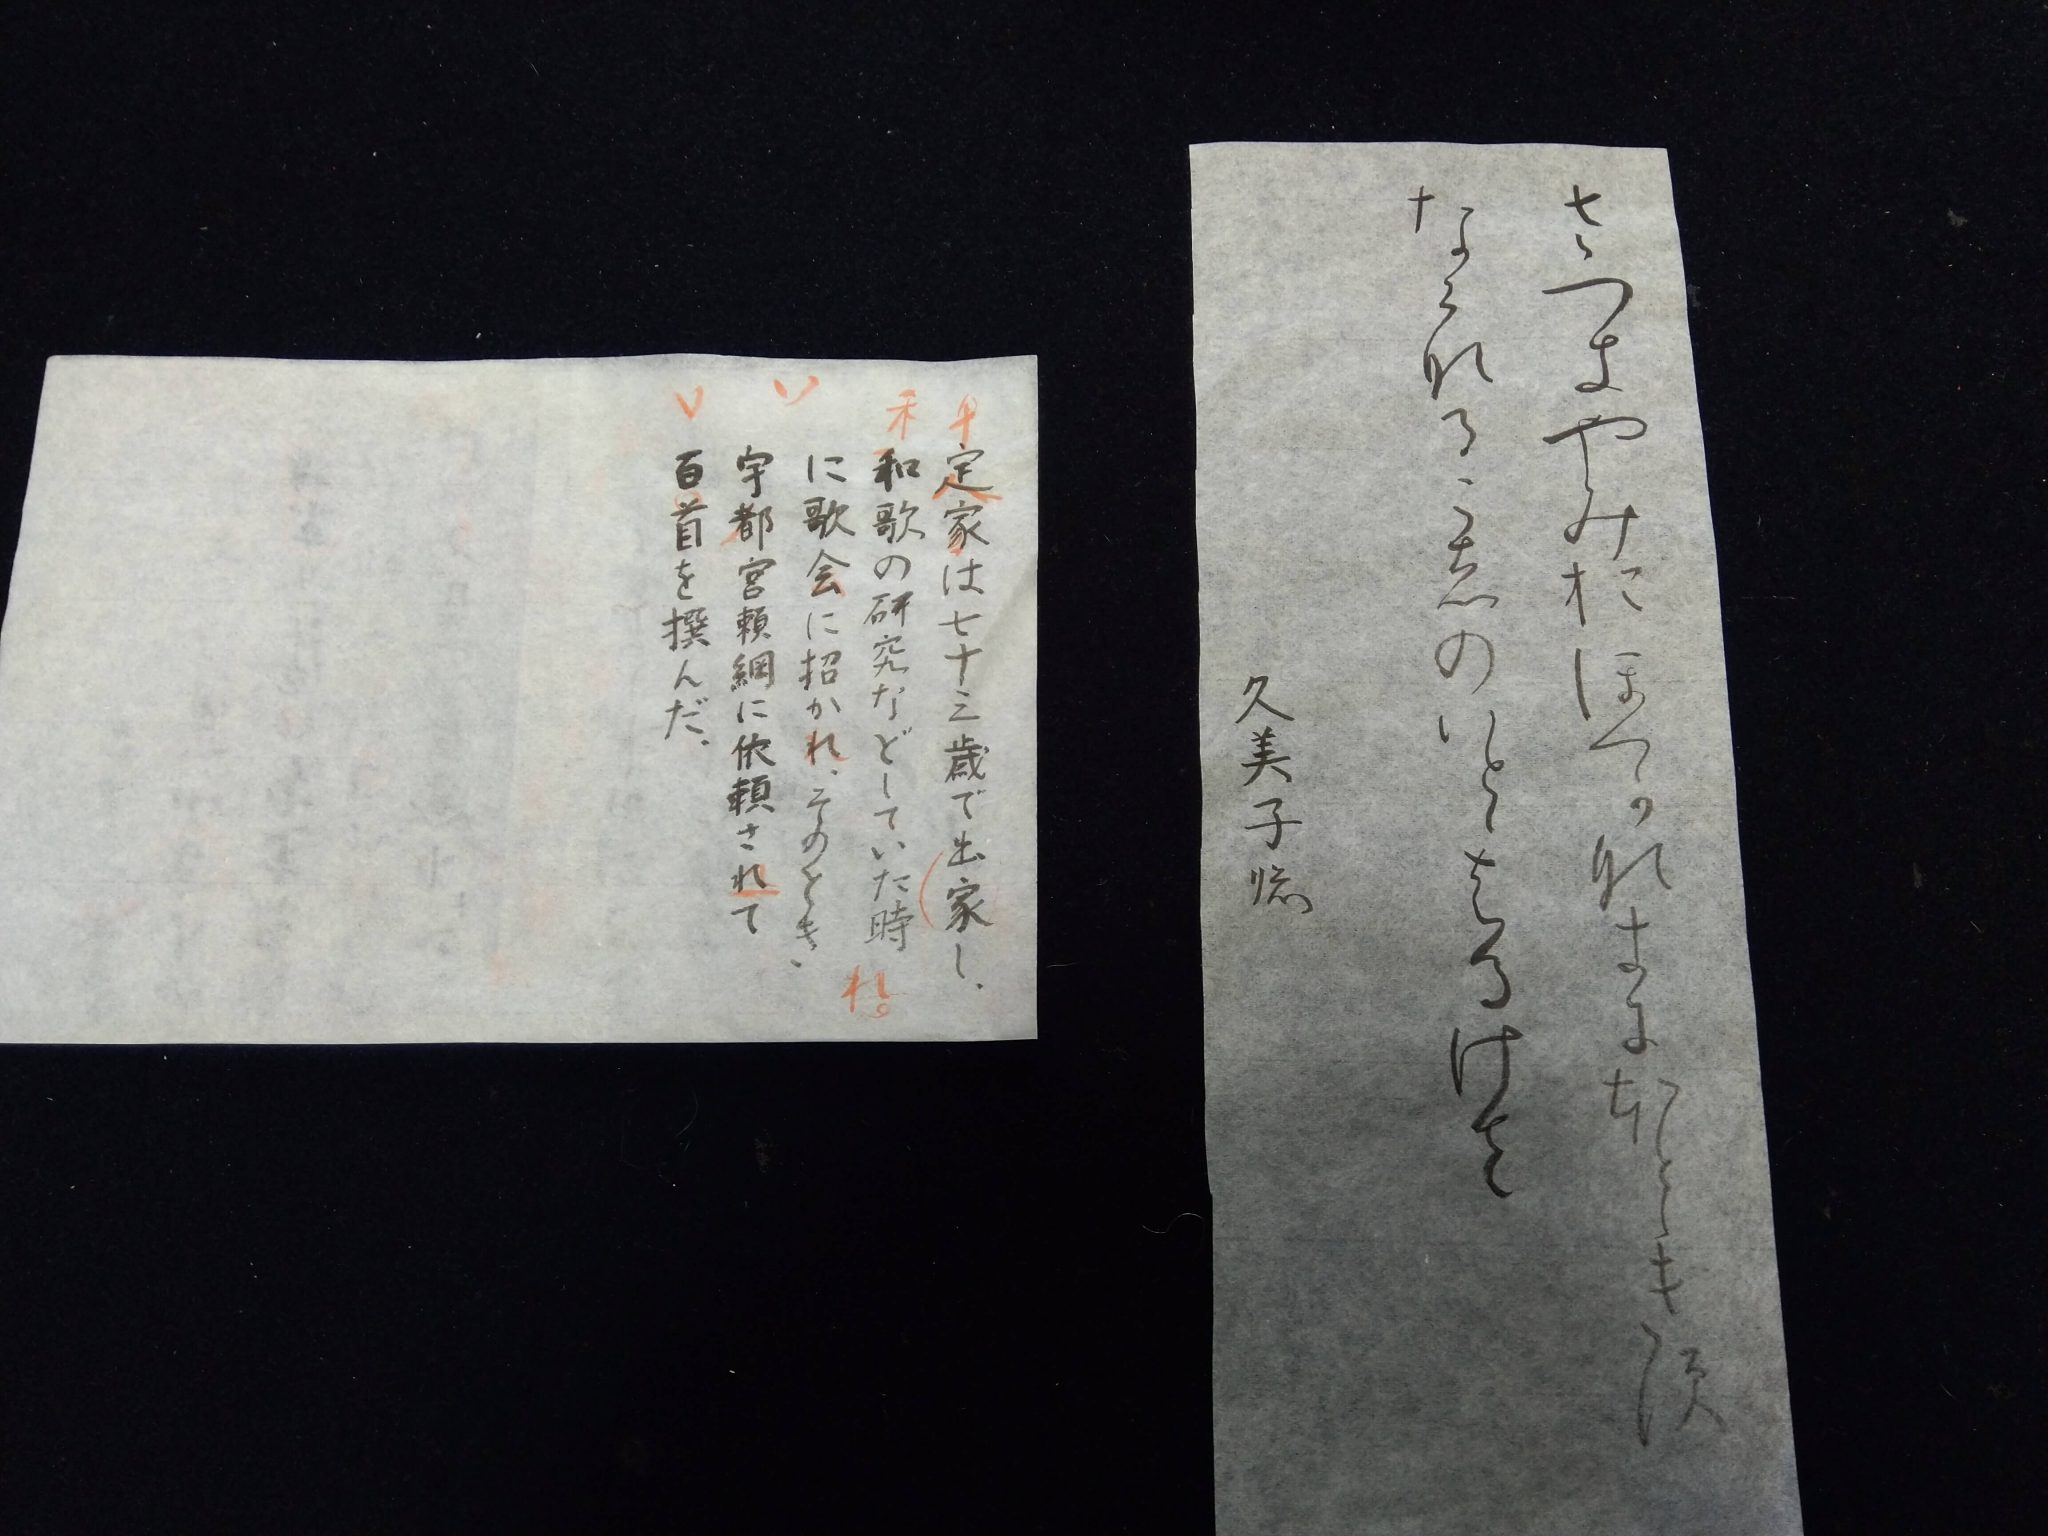 さつきやみおほつかなきにほとゝき須
なくなるこゑのいとゝはるけさ
久美子臨
定家は七十三歳で出家し、
和歌の研究などしていた時
に歌会に招かれ、そのとき、
宇都宮頼綱に依頼されて
百首を撰んだ、
れ